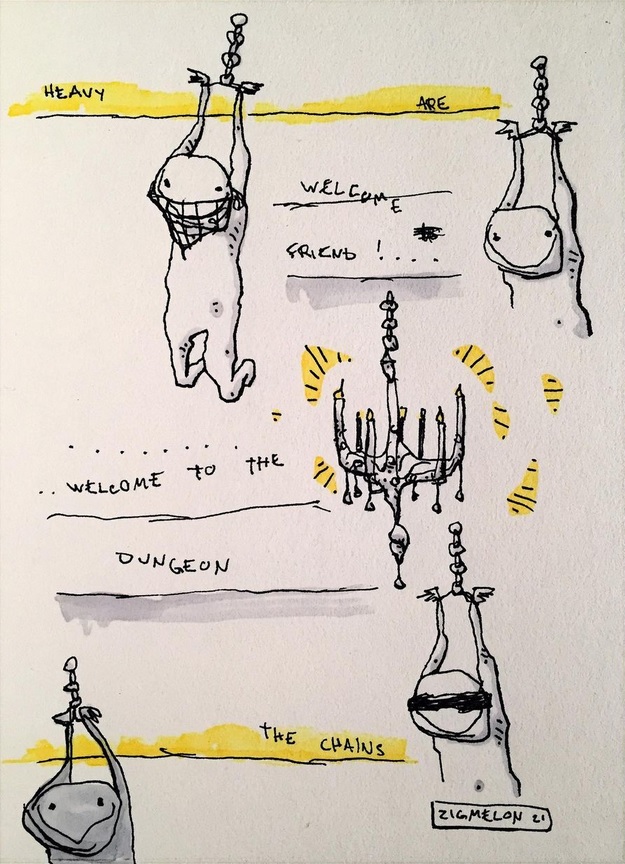 HEAVY ARE
WELCOME
FRIEND ! . . . .
. . . . . . . .
. . WELCOME TO THE
DUNGEON
THE CHAINS
ZIGMELON 21